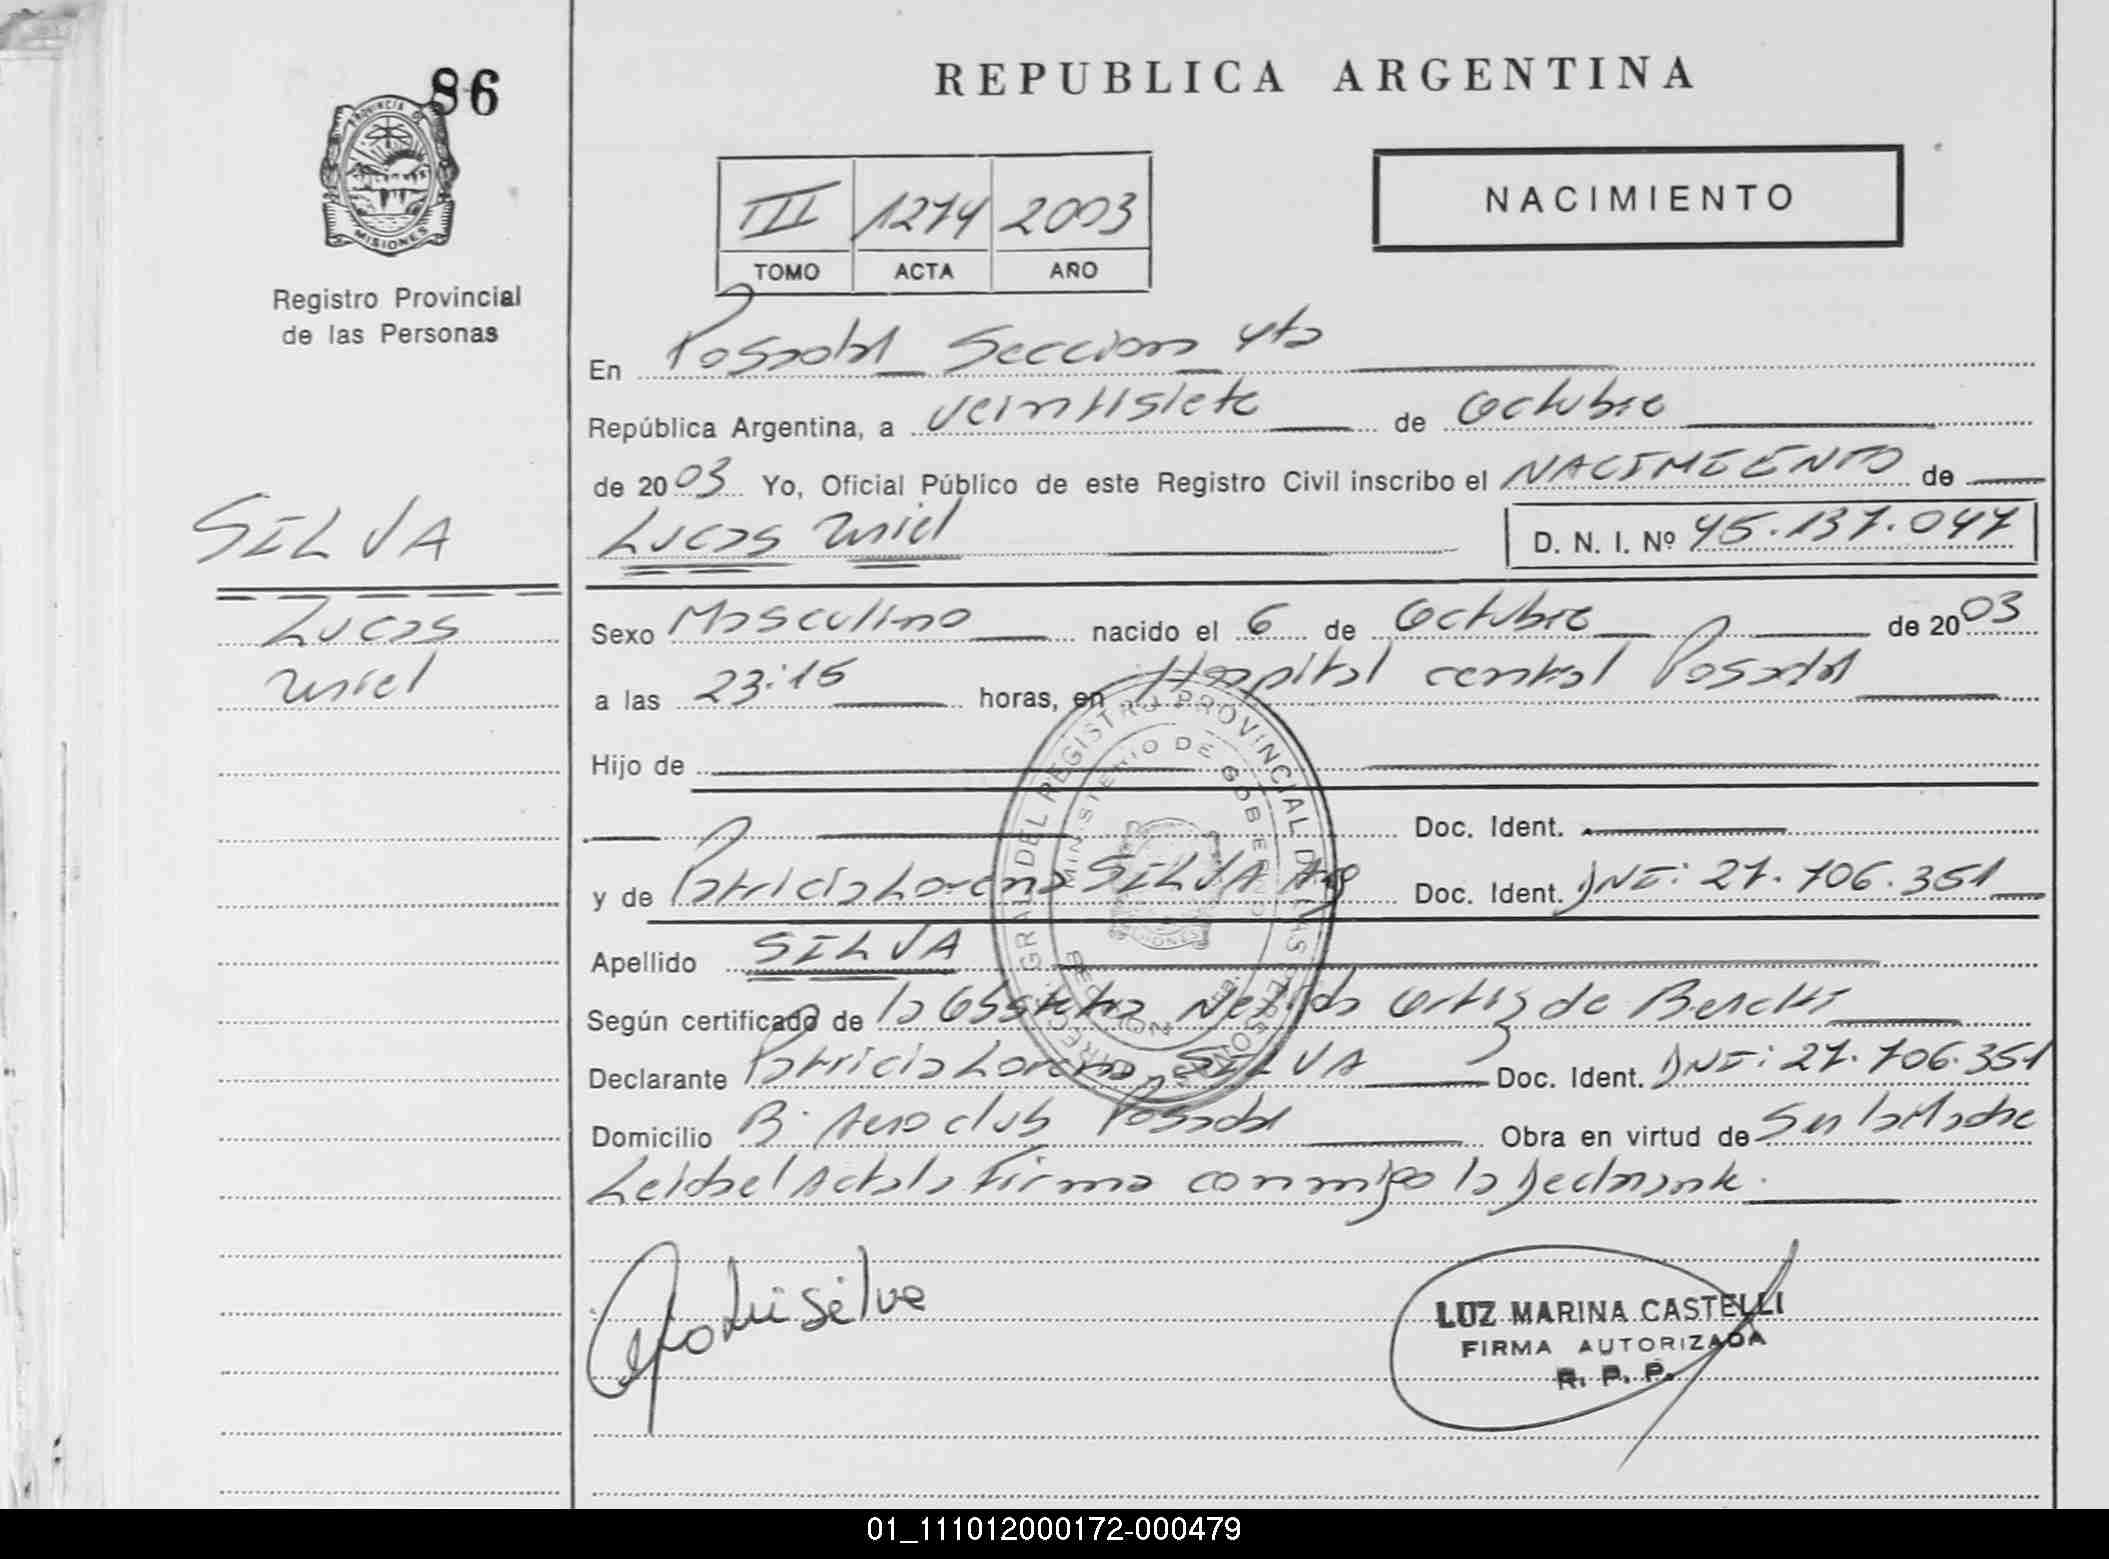 86
PROVINCIA DE
MISIONES
Registro Provincial
de las Personas
SILVA
Lucas
Uriel
REPUBLICA ARGENTINA
III 1274 2003
TOMO ACTA AÑO
NACIMIENTO
En Posadas Seccion 4ta
República Argentina, a veintisiete de Octubre
de 2003 Yo, Oficial Público de este Registro Civil inscribo el NACIMIENTO de
Lucas Uriel D. N. I. Nº 45.137.047
Sexo Masculino nacido el 6 de Octubre de 2003
a las 23:15 horas, en Hospital central Posadas
Hijo de
Doc. Ident.
y de Patricia Lorena SILVA Arg Doc. Ident. DNI: 27.706.351
Apellido SILVA
Según certificado de la Obstetra Nelida Ortiz de
Declarante Patricia Lorena SILVA Doc. Ident. DNI: 27.706.351
Domicilio B. Aeroclub Posadas Obra en virtud de Ser la Madre
Leida el Acta la Firma conmigo la Declarante.
REGISTRO PROVINCIAL DE LAS PERSONAS
MINISTERIO DE GOBIERNO
MISIONES
Silva
LUZ MARINA CASTELLI
FIRMA AUTORIZADA
R. P. P.
01_111012000172-000479